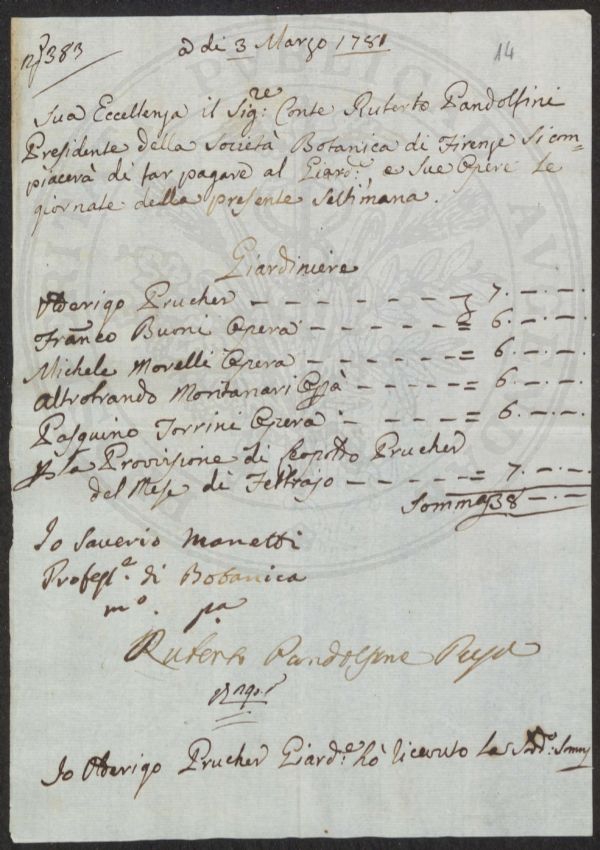 à di 3 Marzo 1781
14
N.º 383
Sua Eccellenza il Sig:re Conte Ruberto Pandolfini
Presidente della Società Botanica di Firenze si com=
piacerà di far pagare al Giard:e, e Sue Opere le
giornate della presente Settimana.
Giardiniere
Oderigo Prucher — — — — — — 7. —. —.
Franco Buoni Opera — — — — — = 6. —. —.
Michele Morelli Opera — — — — — = 6. —. —.
Altobrando Montanari — — — — — = 6. —. —.
Pasquino Torrini Opera — — — — = 6. —. —.
P la Provvisione di Leopoldo Prucher
del Mese di Febbrajo — — — — — = 7. —. —.
Somma 38 —. —.
Io Saverio Manetti
Profess.e di Botanica
m.o p.a
Ruberto Pandolfini
Io Oderigo Prucher Giard:e hò ricevuto la Sud:a Somma